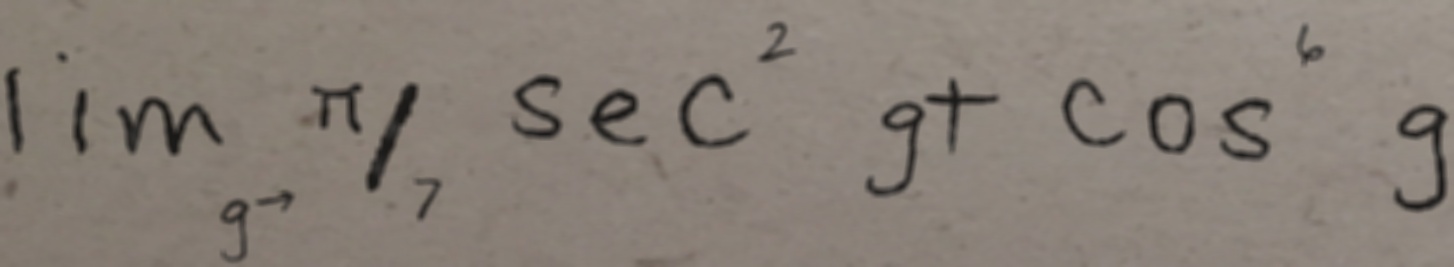 lim g→ π/7 sec² g + cos⁶ g